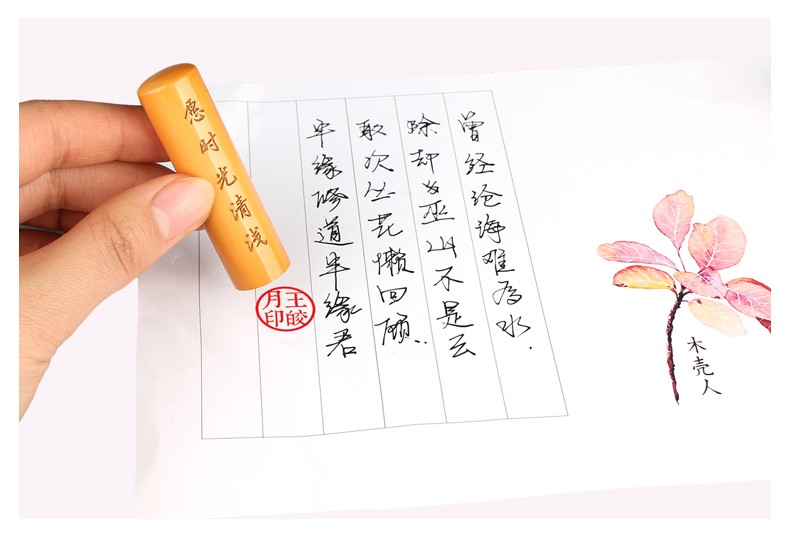 愿时光清浅
曾经沧海难为水.
除却巫山不是云
取次丛花懒回顾..
半缘修道半缘君
王皎
月印
木壳人